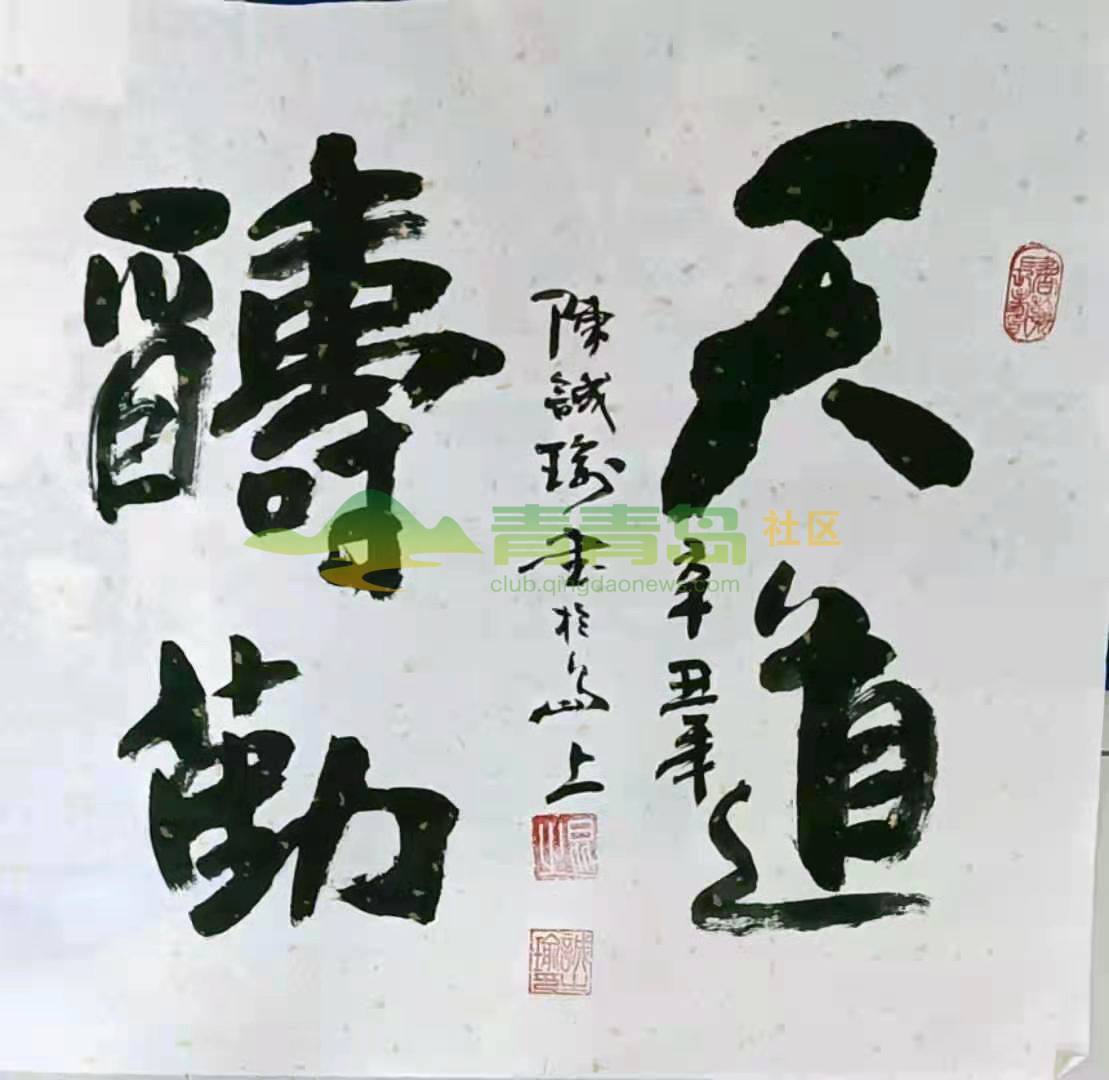 天道
醻勤
辛丑年
陳誠瑜書於島上
青青岛 社区
club.qingdaonews.com
誠瑜之印